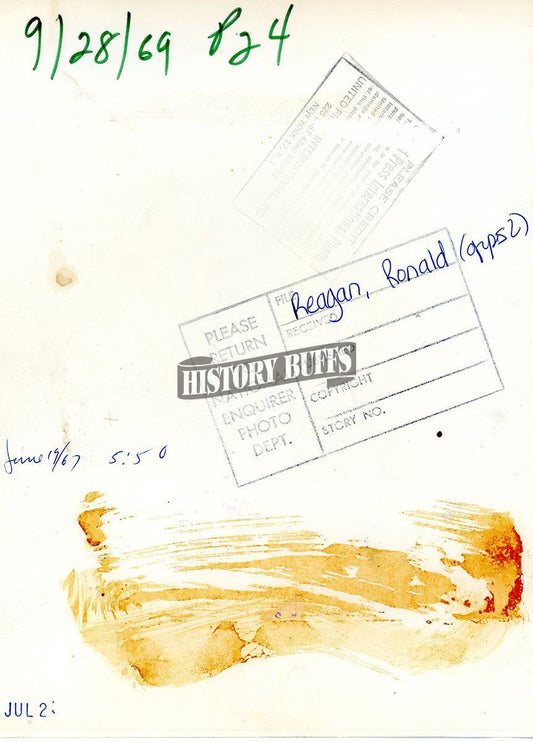 9/28/69 P24
UNITED PR
220 ST 42nd STREET
NEW YORK 17, N.Y.
INTERNATIONAL, INC
PLEASE CREDIT
Press International Photo
PLEASE
RETURN
ENQUIRER
PHOTO
DEPT.
FILE
Reagan, Ronald (grps2)
RECEIVED
COPYRIGHT
STORY NO.
HISTORY BUFFS
June 19/67 5:50
JUL 2